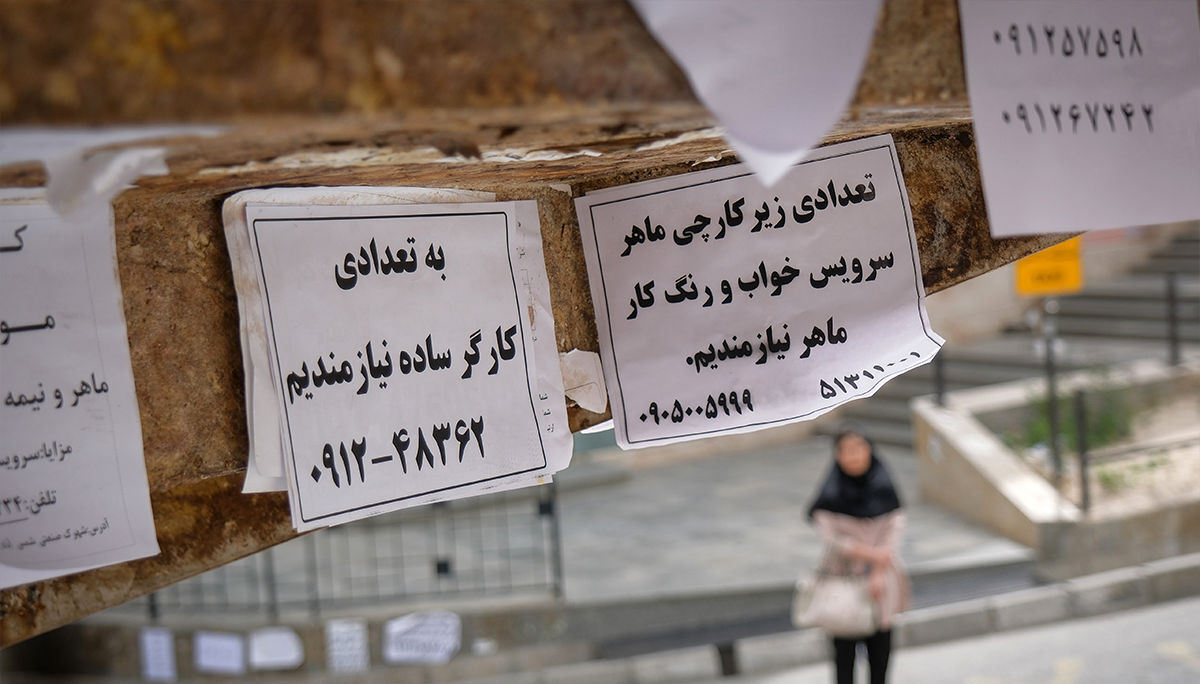 ۰۹۱۲۵۷۵۹۸
۰۹۱۲۶۷۲۴۲
تعدادی زیر کارچی ماهر
سرویس خواب و رنگ کار
ماهر نیازمندیم.
۵۱۳۱۱۰۰۱
۰۹۰۵۰۰۵۹۹۹
به تعدادی
کارگر ساده نیازمندیم
۰۹۱۲-۴۸۳۶۲
ماهر و نیمه
مزایا:سرویس
تلفن:
آدرس:شهرک صنعتی شمس